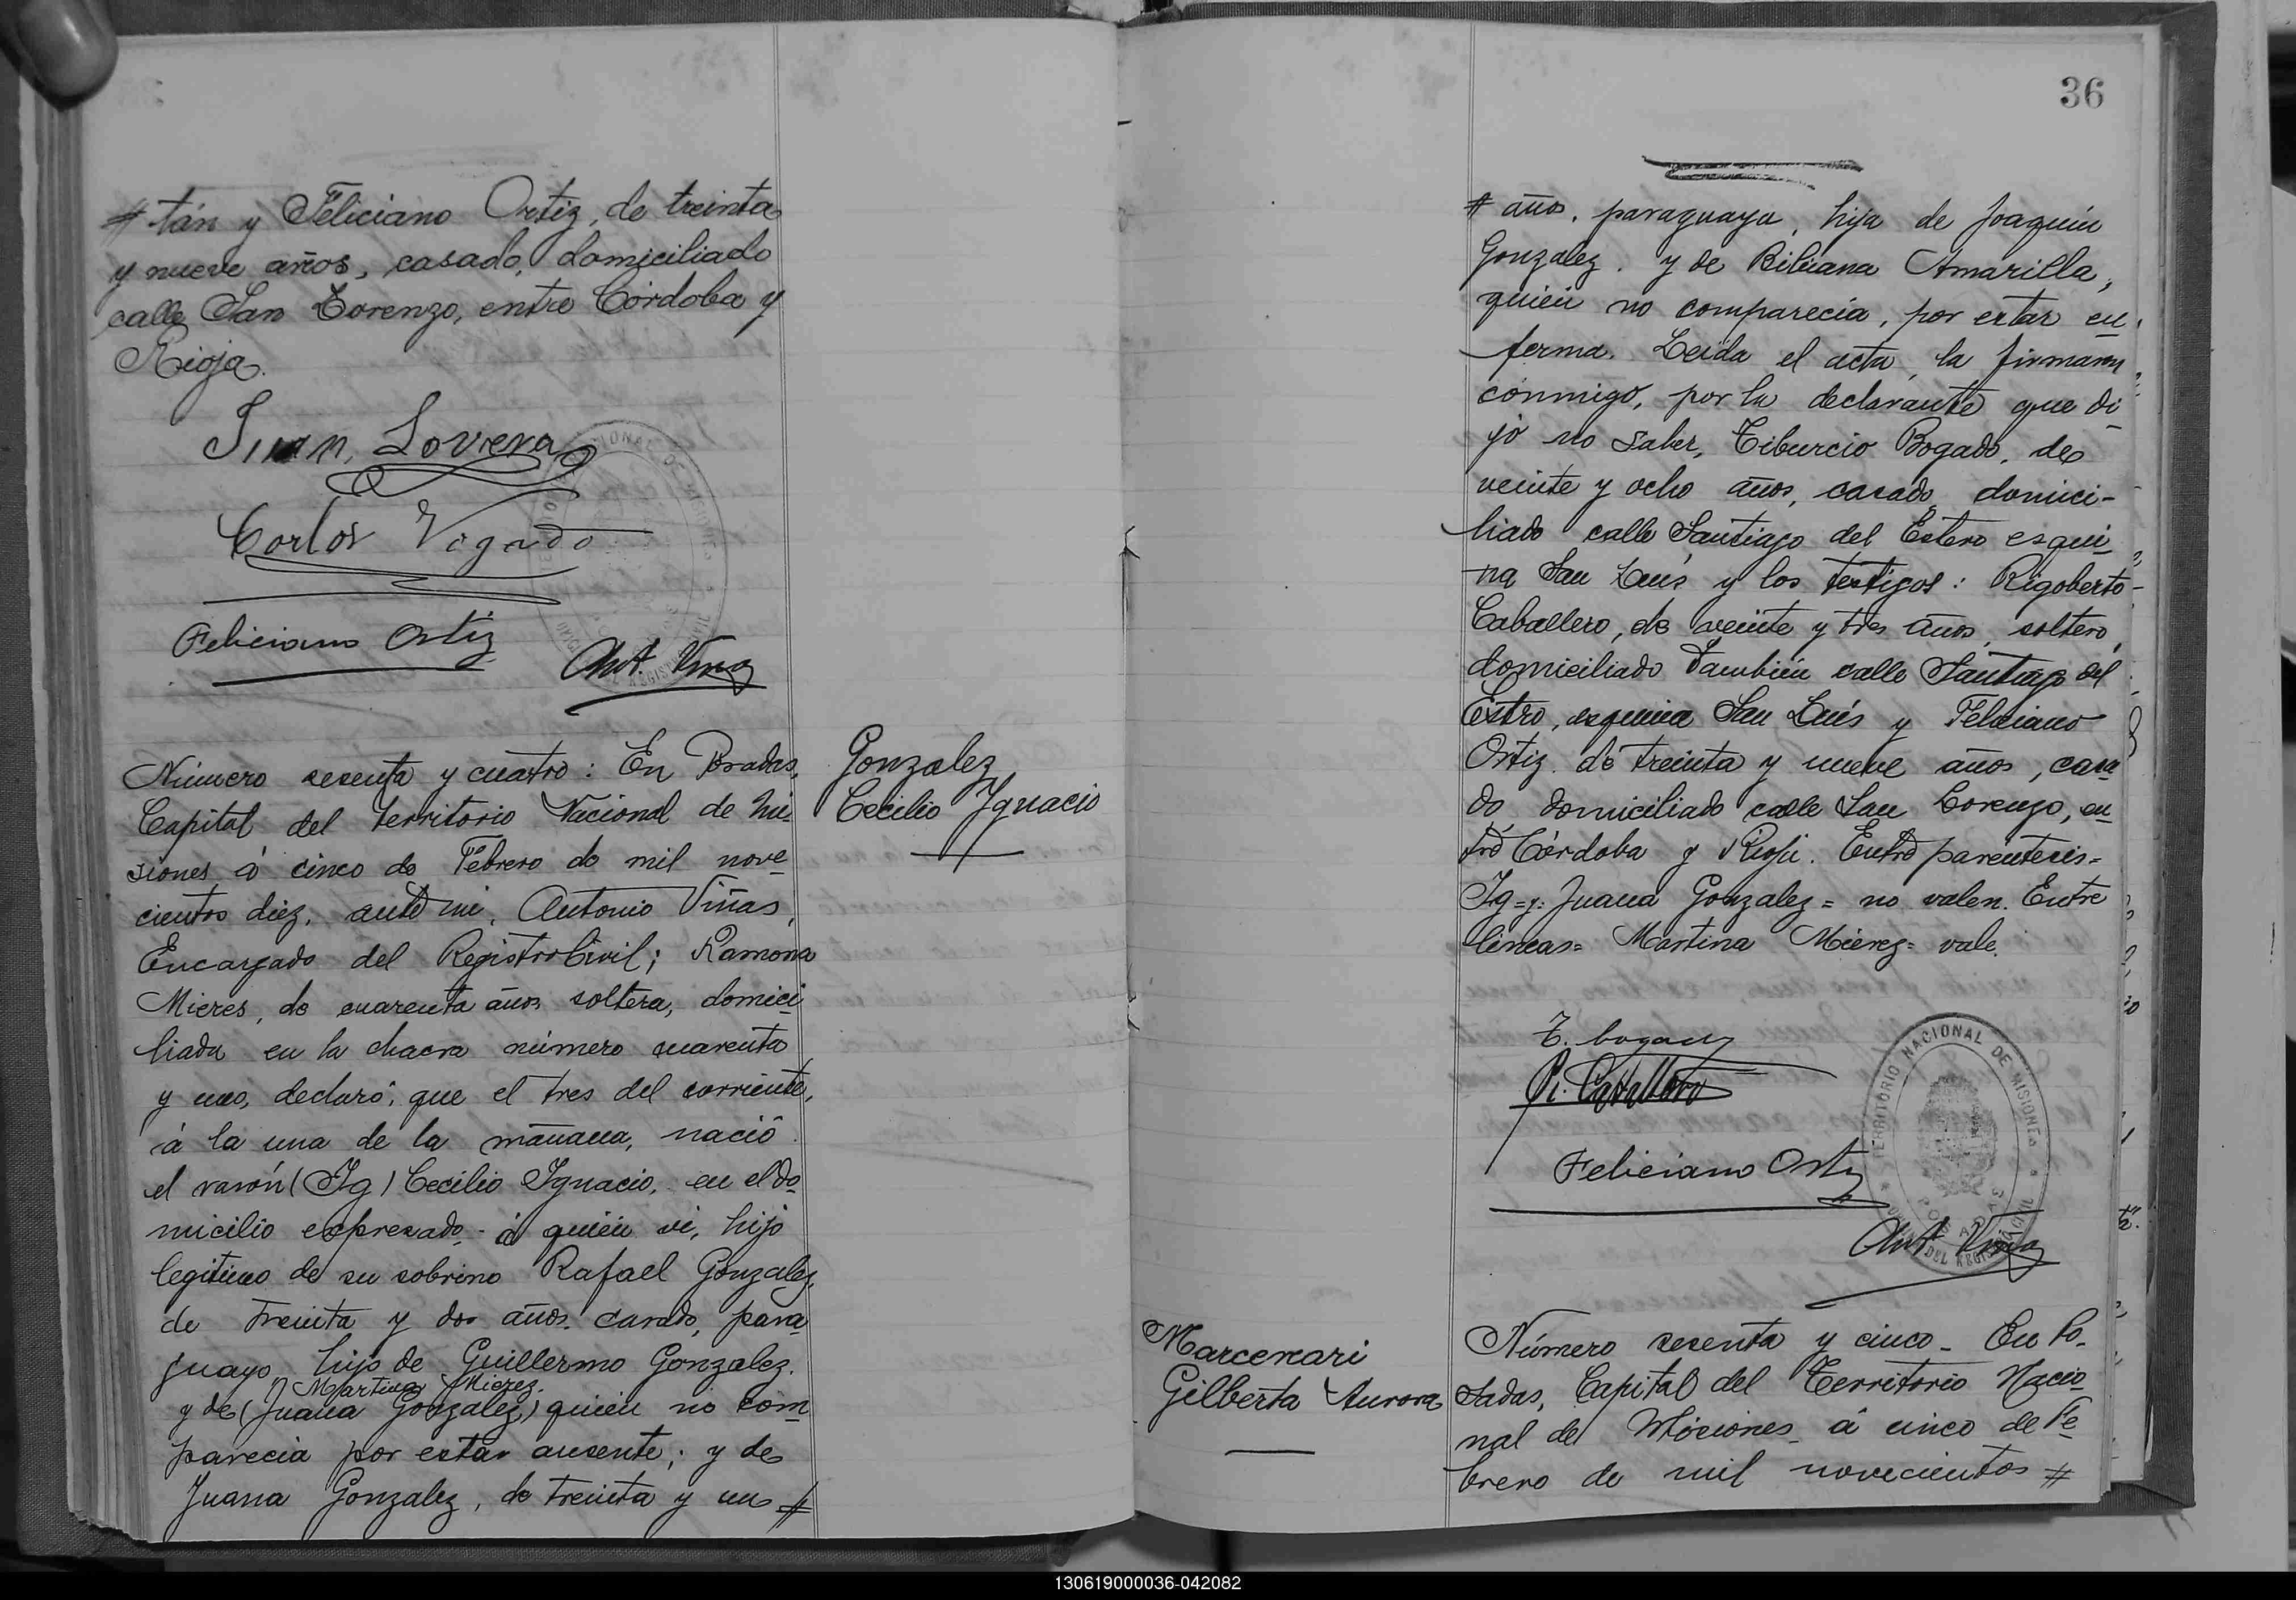 # tán y Feliciano Ortiz, de treinta
y nueve años, casado, domiciliado
calle San Lorenzo, entre Córdoba y
Rioja.
Juan Lovera
Carlos Vogado
Feliciano Ortiz
Ant. Viñas
Gonzalez
Cecilio Ignacio
Número sesenta y cuatro: En Posadas,
Capital del territorio Nacional de Mi-
siones á cinco de Febrero de mil nove
cientos diez, ante mi, Antonio Viñas,
Encargado del Registro Civil; Ramona
Mieres, de cuarenta años, soltera, domici
liada en la chacra número cuarenta
y uno, declaró: que el tres del corriente,
á la una de la mañana, nació
el varón (Ig) Cecilio Ignacio, en el do
micilio expresado, á quien vi, hijo
legitimo de su sobrino Rafael Gonzalez,
de treinta y dos años, casado, para
guayo, hijo de Guillermo Gonzalez,
Martina Mierez.
y de (Juana Gonzalez) quien no com
parecia por estar ausente; y de
Juana Gonzalez, de treinta y un #
36
# años, paraguaya, hija de Joaquin
Gonzalez, y de Biliana Amarilla,
quien no comparecia, por estar en
ferma. Leida el acta, la firmaron
conmigo, por la declarante que di
jo no saber, Tiburcio Bogado, de
veinte y ocho años, casado, domici-
liado calle Santiago del Estero esqui
na San Luis y los testigos: Rigoberto
Caballero, de veinte y tres años, soltero,
domiciliado tambien calle Santiago del
Estro, esquina San Luis y Feliciano
Ortiz, de treinta y nueve años, casa
do, domiciliado calle San Lorenzo, en
tre Córdoba y Rioja. Entre parentesis=
Ig=y: Juana Gonzalez= no valen. Entre
lineas= Martina Mierez= vale.
T. bogado
R. Caballero
Feliciano Ortiz
TERRITORIO NACIONAL DE MISIONES
POSADAS
DEL REGISTRO CIVIL
Ant. Viñas
Marcenari
Gilberta Aurora
Número sesenta y cinco - En Po-
sadas, Capital del Territorio Nacio
nal de Misiones, á cinco de Fe
brero de mil novecientos #
130619000036-042082